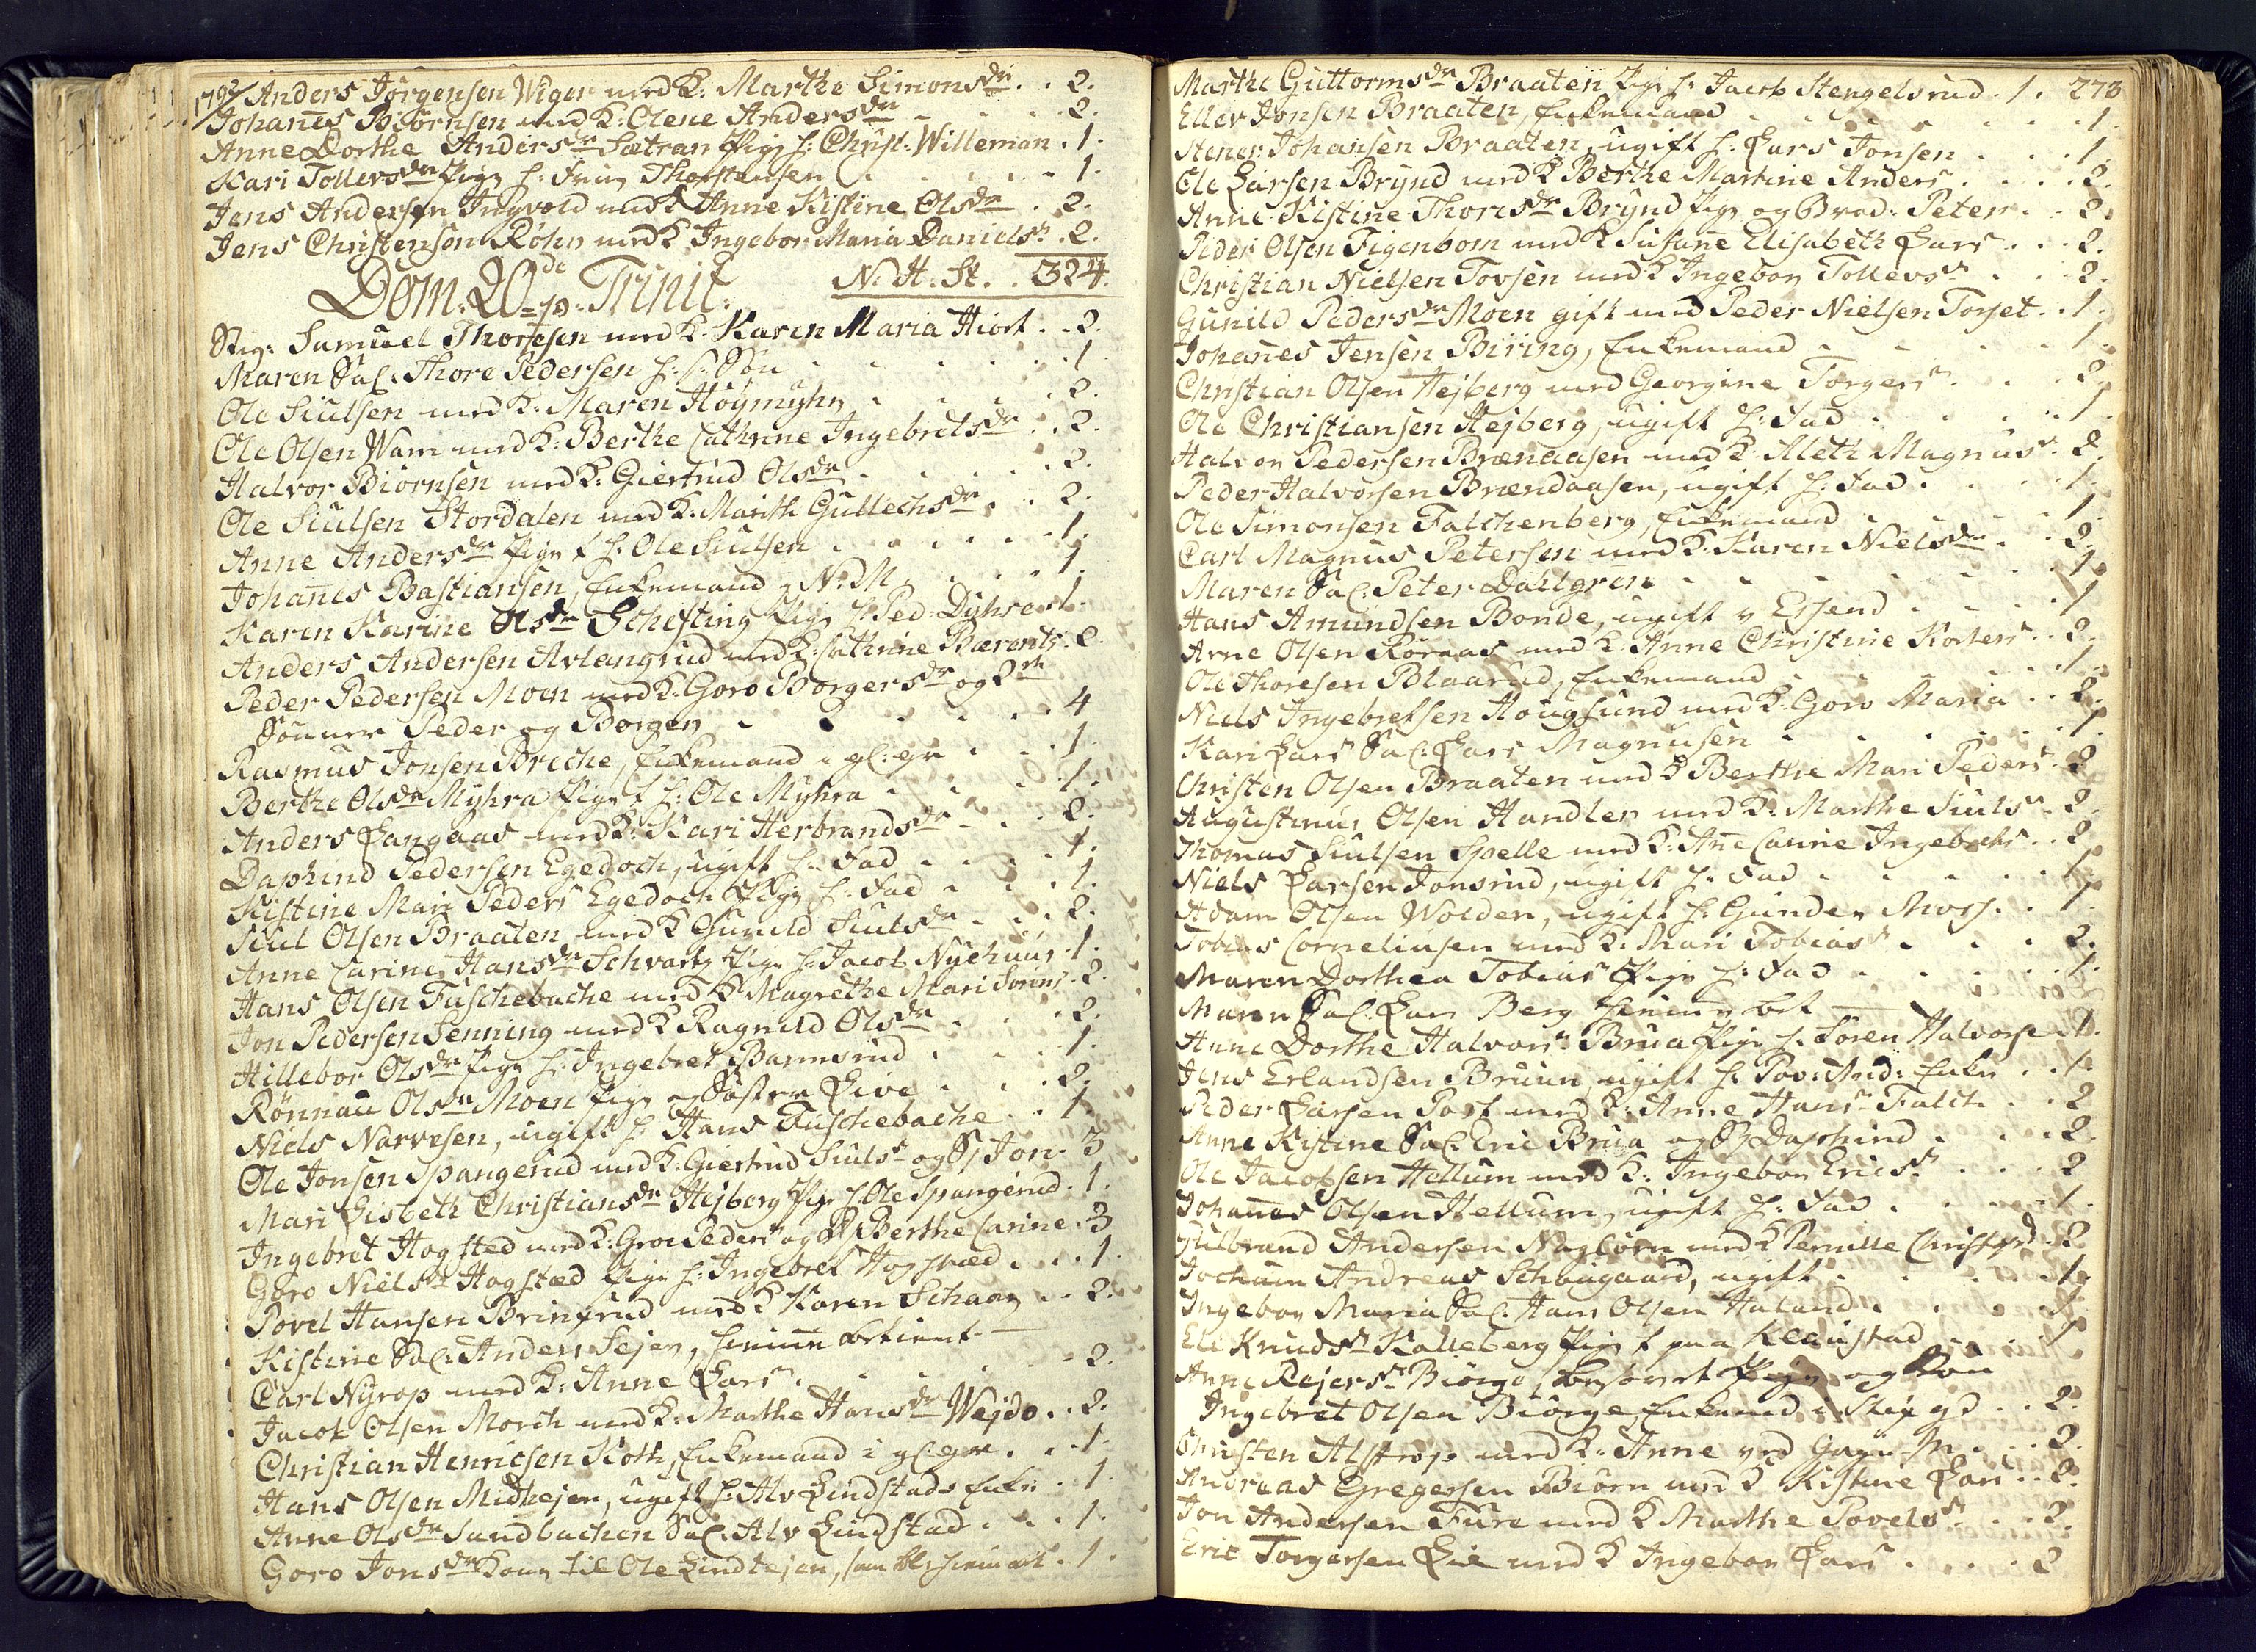 1792/ Anders Jörgensen Wiger med K: Marthe Simonsdr . . 2.
Johanes Biörnsen med K: Olene Andersdr . . . . 2.
Anne Dorthe Andersdr Sætran Pige h: Christ: Willeman . 1.
Kari Tollevsdr Pige h: Thorstensen . . . . 1.
Jens Andersen Ingvold med K Anne Kistine Olsdr . 2.
Jens Christensen Röhn med K Ingebor Maria Daniels . 2.
Dom: 20de p: Trinit: N: H: St. . 324.
Sieg: Samuel Thoresen med K. Karen Maria Hiort . . 2.
Maren Sal: Thore Pedersen h: s: Sön . . . . 1
Ole Siulsen med K: Maren Höymyhr . . . 2.
Ole Olsen Warn med K: Berthe Cathrine Ingebretsdr . . 2.
Halvor Biörnsen med K: Giertrud Olsdr . . . . 2.
Ole Siulsen Stordalen med K. Marith Gullechsdr . . 2.
Anne Andersdr Pige f h: Ole Siulsen . . . . 1.
Johanes Bastiansen, Enkemand N: M. . . . 1.
Karen Karine Olsdr Schesting Pige h Ped: Dyhre . 1.
Anders Andersen Arlangrud med K: Cathrine Bærents . 2
Peder Pedersen Moen med K: Goro Borgersdr og 2de
Sönner Peder og Borger . . . . . 4
Rasmus Jonsen Breche, Enkemand i gl: gr . . . 1
Berthe Olsdr Myhra Pige f h: Ole Myhra . . . 1.
Anders Langaas med K: Kari Herbrandsdr . . . 2.
Daphind Pedersen Egedoch, ugift h: Fad . . . 1.
Kistine Mari Peders Egedoch Pige h: Fad . . . 1.
Siul Olsen Braaten med K Gunild Siulsdr . . . 2.
Anne Carine Hansdr Schvartz Pige h: Jacob Nyehuus . 1.
Hans Olsen Fuschebache med K Magrethe Mari Sörens . 2.
Jon Pedersen Fenning med K Ragnild Olsdr . . . 2.
Hillebor Olsdr Pige h: Ingebret Bannsrud . . . 1.
Rönnau Olsdr Moen Pige og Söster Live . . . 2.
Niels Narvesen, ugift h Hans Fuschebache . . 1.
Ole Jonsen Spangerud med K: Giertrud Siuls og S Jon . 3
Mari Lisbeth Christiansdr Hejberg Pige h Ole Spangerud . 1.
Ingebret Hogsted med K: Groe Peders og D Berthe Carine . 3
Goro Niels Hogstæd Pige h: Ingebret Hogstæd . . . 1.
Povel Hansen Bringsrud med K Karen Schaan . . 2.
Kistine Sal: Anders Fejer, hiemme betient —
Carl Nyrop med K: Anne Lars . . . . 2.
Jacob Olsen Morch med K: Marthe Hansdr Wejdo . . 2.
Christian Henricsen Koth, Enkemand i gl: gr . . . 1.
Hans Olsen Midhejen, ugift h: Alv Lindstads Enke . 1.
Anne Olsdr Sandbachen Sal: Alv Lindstad . . . 1.
Goro Jonsdr Kone til Ole Lindtejen, som bl: hiem . 1.
Marthe Guttormsdr Braaten Pige h: Jacob Stengelsrud . 1. 273
Eller Jonsen Braaten, Enkemand . . . . . 1.
Stener Johansen Braaten, ugift h: Lars Jonsen . . . 1.
Ole Larsen Brynd med K Berthe Martine Anders . . . 2.
Anne Kistine Thoresdr Brynd Pige og Brod: Peter . . 2.
Peder Olsen Figenbom med K Susane Elisabeth Lars . . . 2.
Christian Nielsen Torsen med K Ingebor Tollevs . . . 2.
Gunild Pedersdr Moen gift med Peder Nielsen Torset . . 1.
Johanes Jensen Biring, Enkemand . . . . 1.
Christian Olsen Hejberg med Georgine Torgers . . . 2.
Ole Christiansen Hejberg, ugift h: Fad . . . . 1.
Halvor Pedersen Brænaasen med K: Aleth Magnus . 2.
Peder Halvorsen Brændaasen, ugift h: Fad . . . . 1.
Ole Simonsen Falchenberg, Enkemand . . . . 1.
Carl Magnus Petersen med K: Karen Nielsdr . . . 2.
Maren Sal: Peter Dahlgren . . . . . 1.
Hans Amundsen Bonde, ugift v Essend . . . . 1
Arne Olsen Röraas med K Anne Christine Kosters . . 2.
Ole Thoresen Blaarud, Enkemand . . . . 1.
Niels Ingebretsen Hougsund med K: Goro Maria . . 2.
Kari Lars Sal: Lars Magnusen . . . . . 1.
Christen Olsen Braaten med K Berthe Mari Peders . 2
Augustinus Olsen Handler med K: Marthe Siuls . 2.
Thomas Siulsen Spelle med K: Ane Carine Ingebrechs . . 2
Niels Larsen Jonsrud, ugift h: Fad . . . . 1.
Adam Olsen Wolden, ugift h: Gunder Moss . . 1.
Tobias Corneliusen med K: Mari Tobias . . . 2.
Maren Dorthea Tobias Pige h: Fad . . . . 1.
Maren Sal: Lars Berg hiemme bet —
Anne Dorthe Halvors Brua Pige h. Sören Halvorse . 1.
Jens Erlandsen Bruun, ugift h: Pov: And: Enke . . 1.
Peder Larsen Post med K: Anne Hans Falch . . 2
Anne Kistine Sal: Eric Brua og S: Daphind . . . 2.
Ole Jacobsen Hellum med K: Ingebor Erics . . . . 2
Johanes Olsen Hellum, ugift h: Fad . . . . 1.
Gulbrand Andersen Nagbörn med K Pernille Christ . 2
Jochum Andreas Schougaard, ugift . . . . 1.
Ingebor Maria Sal: Hans Olsen Haland . . . 1.
Eli Knuds Kalleberg Pige f paa Klaustad . . . 1
Anne Rejers Biörge besovet Pige og
Ingebret Olsen Biörge, Enkemd i gd . . 2.
Christen Alstrop med K: Anne ved . . . 2.
Andreas Gregersen Biörn med K Kistine Lars . . 2.
Jon Andersen Fure med K Marthe Povels . . . 2.
Eric Torgersen Lie med K Ingebor Lars . . . . 2